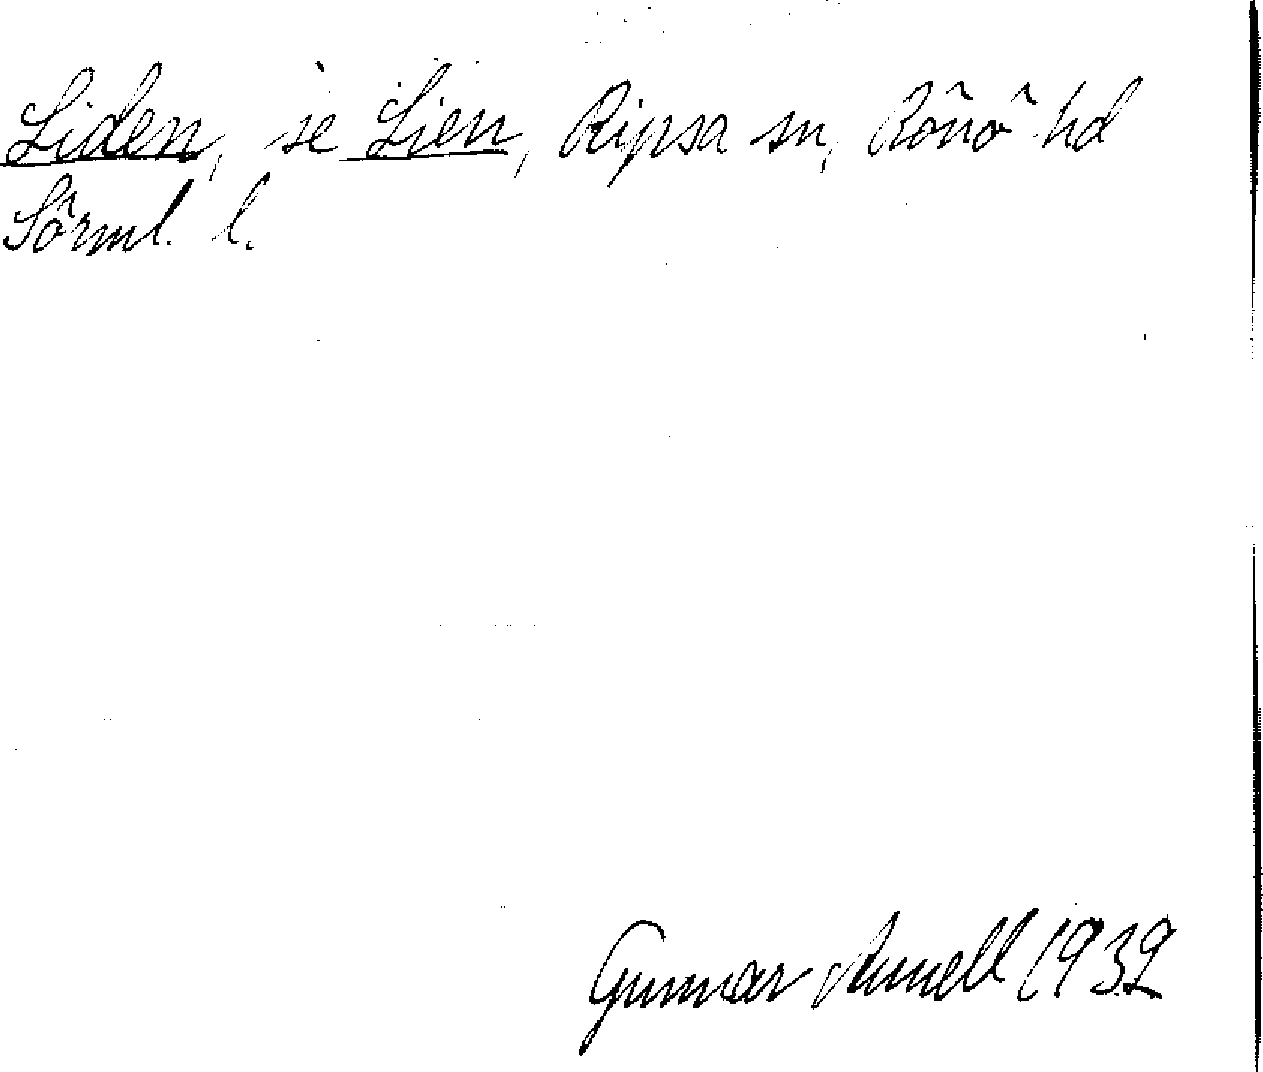 Liden, se Lien, Ripsa sn, Rönö hd
Sörml. l.
Gunnar 1932